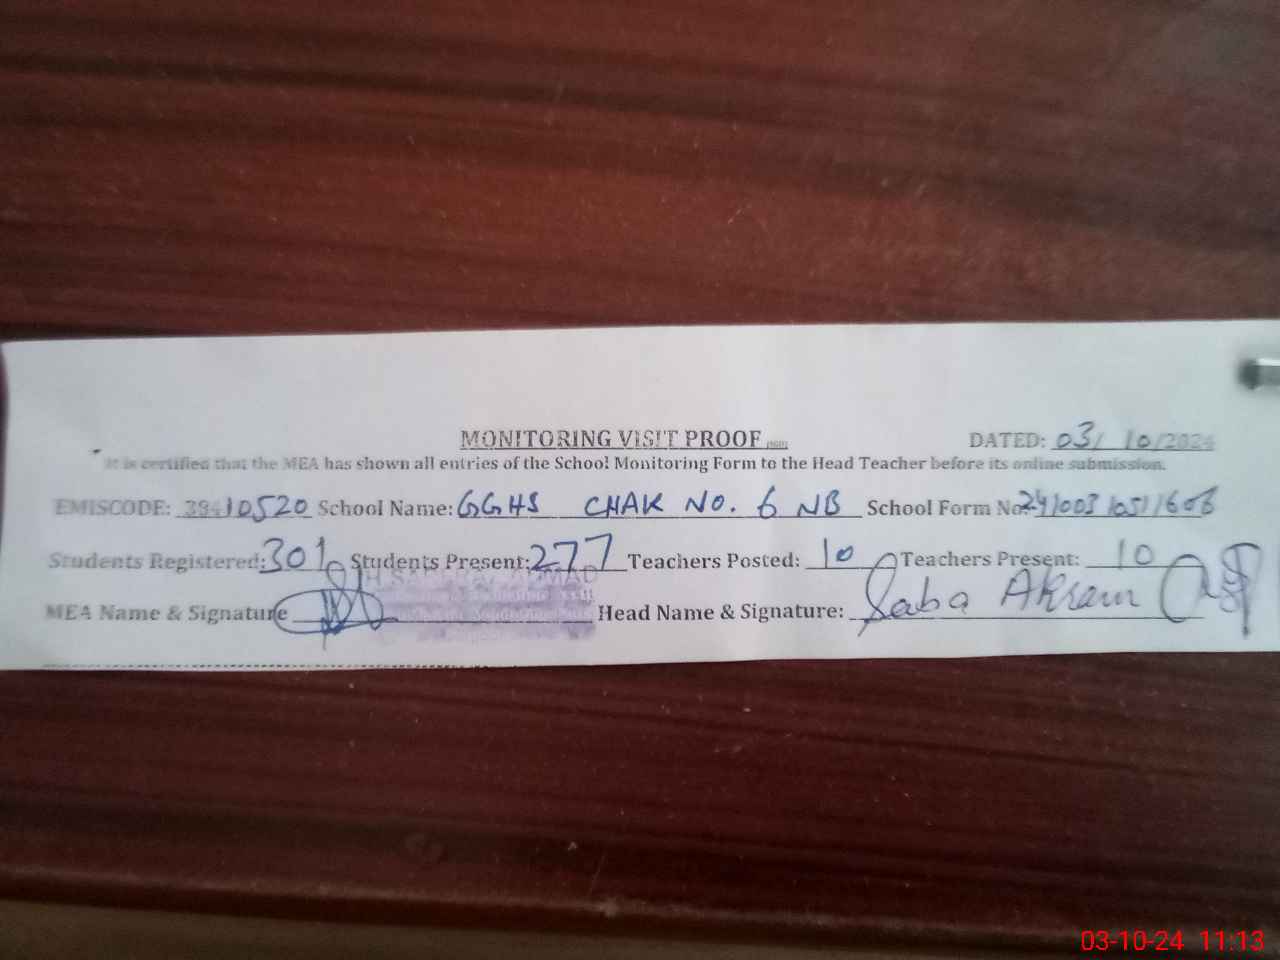 MONITORING VISIT PROOF
DATED: 03/10/2024
It is certified that the MEA has shown all entries of the School Monitoring Form to the Head Teacher before its online submission.
EMISCODE: 38410520 School Name: GGHS CHAK NO. 6 NB School Form No:
Students Registered: 301 Students Present: 277 Teachers Posted: 10 Teachers Present: 10
MEA Name & Signature Head Name & Signature: Saba Akram
03-10-24 11:13